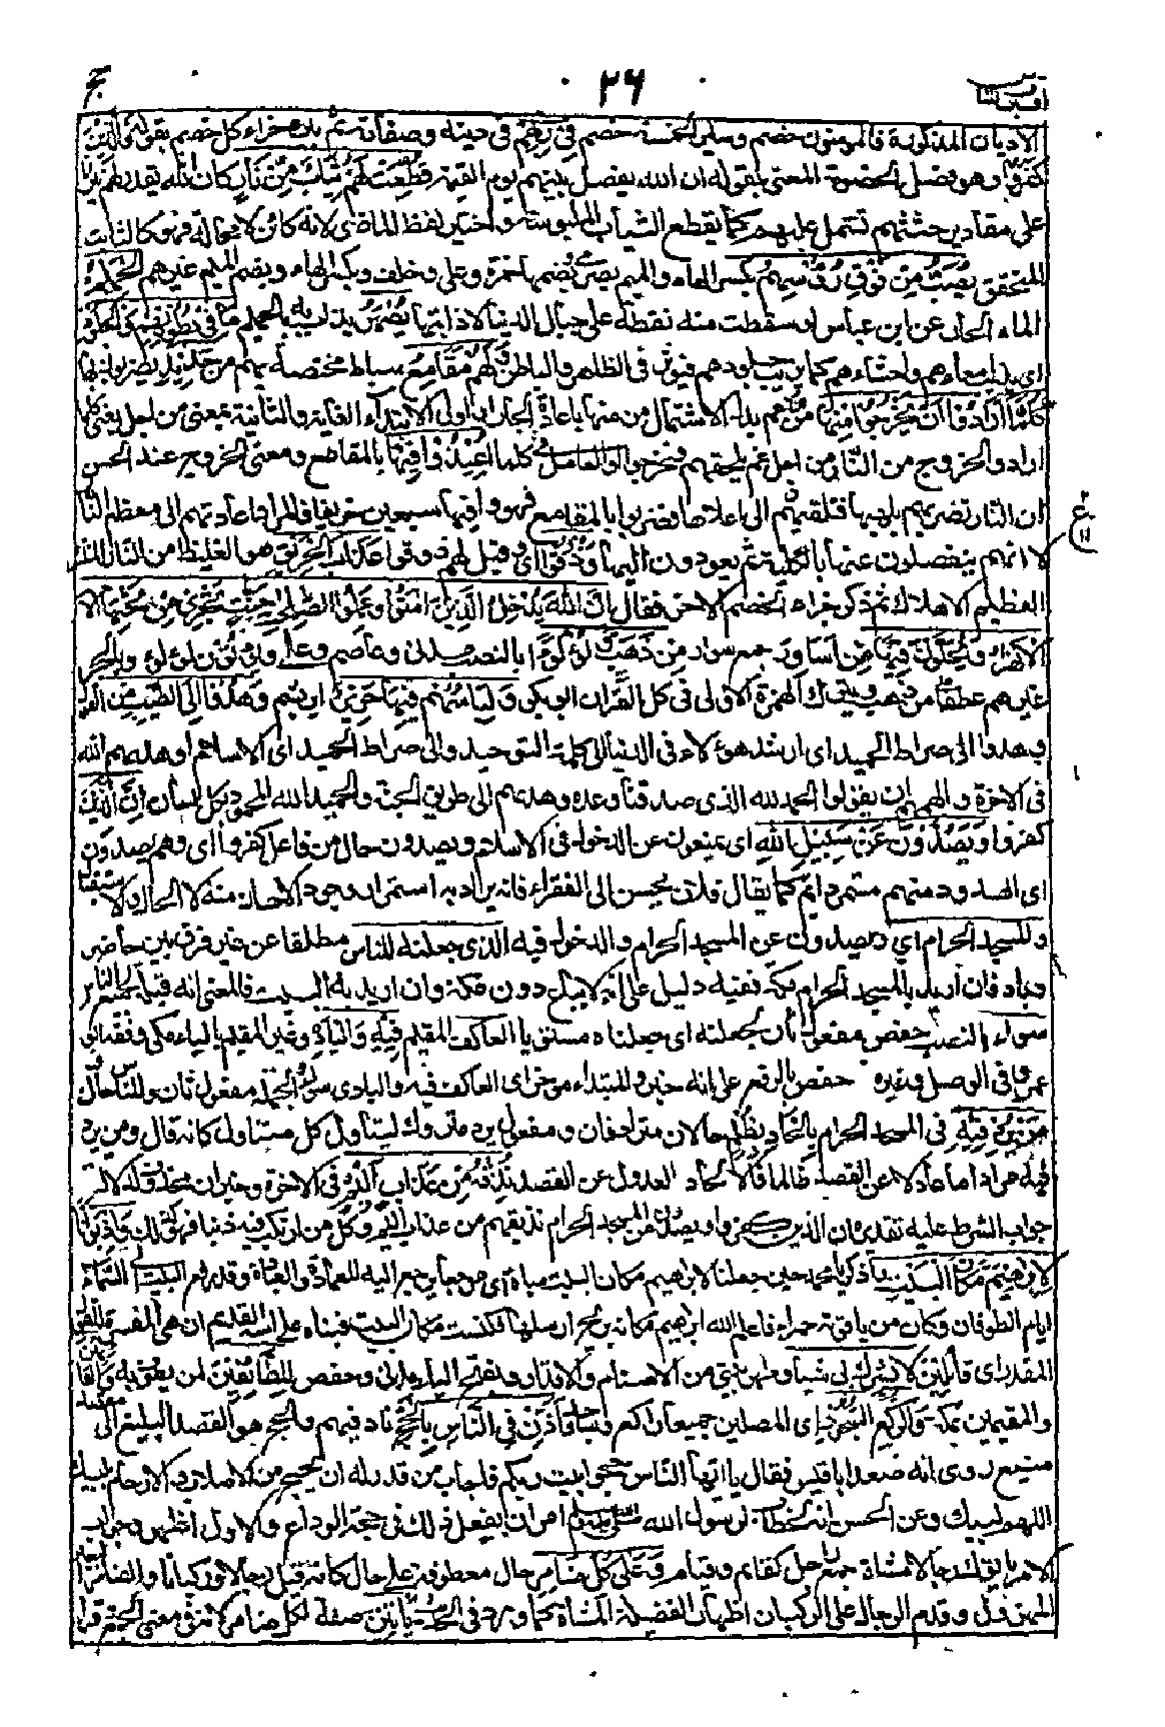 اقترب ٢٦ حج
الاديان المذكورة فالمؤمنون خصم وسائر الخمسة خصم فى ربهم فى دينه وصفاته ثم بين جزاء كل خصم بقوله فالذين
كفروا وهو فصل الخصومة المعنى بقوله ان الله يفصل بينهم يوم القيمة قطعت لهم ثياب من نار كان الله يقدر لهم نيرانا
على مقادير جثثهم تشتمل عليهم كما تقطع الثياب الملبوسة واختير لفظ الماضى لانه كائن لا محالة فهو كالثابت
المتحقق يصب من فوق رءوسهم بكسر الهاء والميم بصرى بضمهما حمزة وعلى وخلف وبكسر الهاء وبضم الميم غيرهم الحميم
الماء الحار عن ابن عباس لو سقطت منه نقطة على جبال الدنيا لاذابتها يصهر يذاب به بالحميم ما فى بطونهم والجلود
اى يذيب امعاءهم واحشاءهم كما يذيب جلودهم فيؤثر فى الظاهر والباطن ولهم مقامع سياط مختصة بهم من حديد يضربون بها
كلما ارادوا ان يخرجوا منها من غم بدل الاشتمال من منها باعادة الجار او الاولى لابتداء الغاية والثانية بمعنى من اجل يعنى كلما
ارادوا الخروج من النار من اجل غم يلحقهم فخرجوا اعيدوا فيها بالمقامع ومعنى الخروج عند الحسن
ان النار تضربهم بلهبها فتلقيهم الى اعلاها فضربوا بالمقامع فهووا فيها سبعين خريفا فالمراد اعادتهم الى معظم النار
لا انهم ينفصلون عنها بالكلية ثم يعودون اليها وذوقوا اى وقيل لهم ذوقوا عذاب الحريق هو الغليظ من النار المنتشر
العظيم الاهلاك ثم ذكر جزاء الخصم الاخر فقال ان الله يدخل الذين امنوا وعملوا الصلحت جنت تجرى من تحتها الا
الانهر يحلون فيها من اساور جمع اسورة جمع سوار من ذهب ولؤلؤا بالنصب مدنى وعاصم وعلى ويؤتون لؤلؤا وبالجر
غيرهم عطفا من ذهب وبترك الهمزة الاولى فى كل القران ابو بكر ولباسهم فيها حرير ابريسم وهدوا الى الطيب من القول
وهدوا الى صراط الحميد اى ارشد هؤلاء فى الدنيا الى كلمة التوحيد والى صراط الحميد اى الاسلام او هداهم الله
فى الاخرة والهمهم ان يقولوا الحمد لله الذى صدقنا وعده وهداهم الى طريق الجنة والحميد الله المحمود بكل لسان ان الذين
كفروا ويصدون عن سبيل الله اى يمنعون عن الدخول فى الاسلام ويصدون حال من فاعل كفروا اى وهم يصدون
اى الصدود منهم مستمر دائم كما يقال فلان يحسن الى الفقراء فانه يراد به استمرار وجود الاحسان منه لا الحال ولا الاستقبال
والمسجد الحرام اى ويصدون عن المسجد الحرام والدخول فيه الذى جعلنه للناس مطلقا من غير فرق بين حاضر
وباد فان اريد بالمسجد الحرام مكة ففيه دليل على انه لا تباع دور مكة وان اريد به البيت فالمعنى انه قبلة لجميع الناس
سواء بالنصب حفص مفعول ثان لجعلنه اى جعلناه مستويا العاكف المقيم فيه والباد وغير المقيم بالياء مكى وافقه ابو
عمرو فى الوصل وغيره حفص بالرفع على انه خبر والمبتداء مؤخر اى العاكف فيه والبادى سواء والجملة مفعول ثان وللناس حال
ومن يرد فيه فى المسجد الحرام بالحاد بظلم حالان مترادفان ومفعول يرد متروك ليتناول كل متناول كانه قال ومن يرد
فيه مرادا ما عادلا عن القصد ظالما فالالحاد العدول عن القصد نذقه من عذاب اليم فى الاخرة وخبر ان محذوف لدلالة
جواب الشرط عليه تقديره ان الذين كفروا ويصدون عن المسجد الحرام نذيقهم من عذاب اليم وكل من ارتكب فيه ذنبا فهو كذلك واذ بوانا
لابرهيم مكان البيت واذكر يا محمد حين جعلنا لابراهيم مكان البيت مباءة اى مرجعا يرجع اليه للعمارة والعبادة وقد رفع البيت الى السماء
ايام الطوفان وكان من ياقوتة حمراء فاعلم الله ابراهيم مكانه بريح ارسلها فكنست مكان البيت فبناه على اسه القديم ان هى المفسرة للقول
المقدر اى قائلين لا تشرك بى شيئا وطهر بيتى من الاصنام والاقذار وبفتح الياء مدنى وحفص للطائفين لمن يطوف به والقائمين
والمقيمين بمكة والركع السجود المصلين جمع راكع وساجد واذن فى الناس بالحج ناد فيهم والحج هو القصد البليغ الى
منيع روى انه صعد ابا قبيس فقال يا ايها الناس حجوا بيت ربكم فاجاب من قدر له ان يحج من الاصلاب والارحام بلبيك
اللهم لبيك وعن الحسن انه خطاب لرسول الله صلى الله عليه وسلم امر ان يفعل ذلك فى حجة الوداع والاول اظهر وجواب
الامر ياتوك رجالا مشاة جمع راجل كقائم وقيام وعلى كل ضامر حال معطوفة على حال كانه قيل رجالا وركبانا والضامر البعير
المهزول وقدم الرجال على الركبان اظهارا لفضيلة المشاة كما ورد فى الحديث ياتين صفة لكل ضامر لانه فى معنى الجمع وقرا